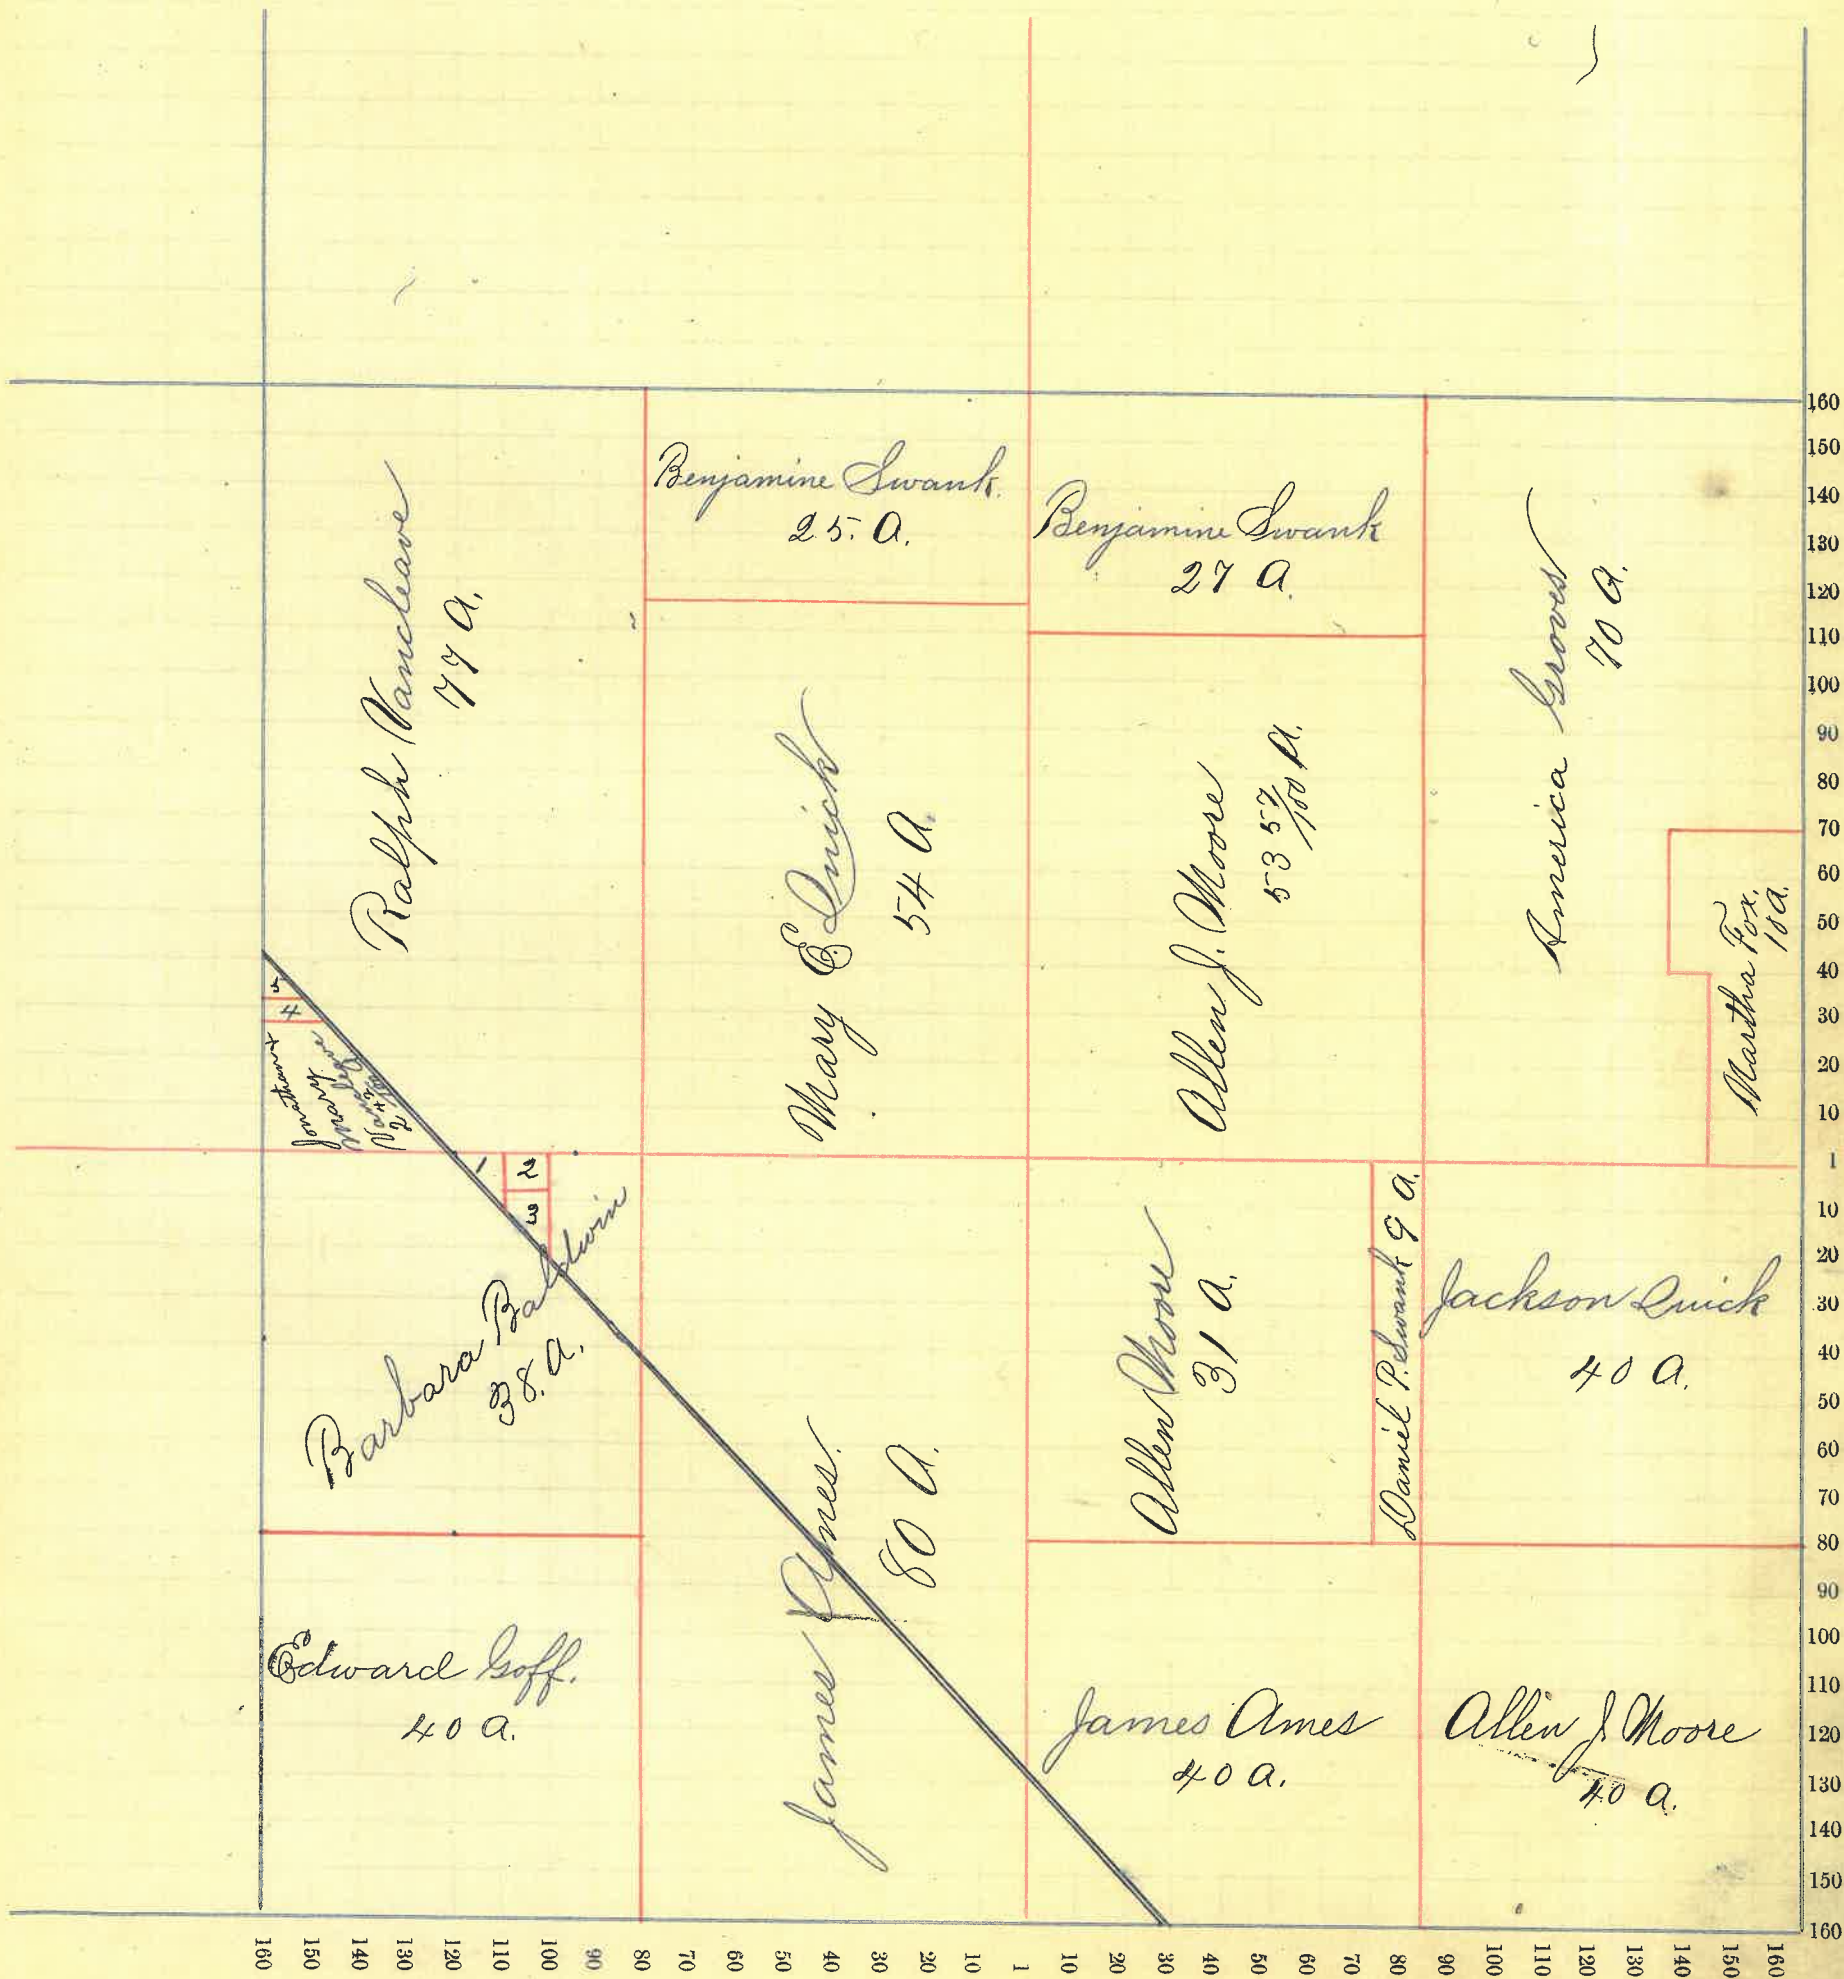 Benjamine Swank.
25. A.
Benjamine Swank
27 A.
Ralph Vancleave
77 A.
Mary E Quick
54 A.
Allen J. Moore
53 57/100 A.
America Groves
70 A.
Martha Fox.
10 A.
5
4
Jonathan +
Mary
1
2
3
Barbara Baldwin
38. A.
Edward Goff.
40 A.
James Ames.
80 A.
Allen Moore
31 A.
Daniel P. Swank 9 A.
Jackson Quick
40 A.
James Ames
40 A.
Allen J. Moore
40 A.
160
150
140
130
120
110
100
90
80
70
60
50
40
30
20
10
1
10
20
30
40
50
60
70
80
90
100
110
120
130
140
150
160
160 150 140 130 120 110 100 90 80 70 60 50 40 30 20 10 1 10 20 30 40 50 60 70 80 90 100 110 120 130 140 150 160